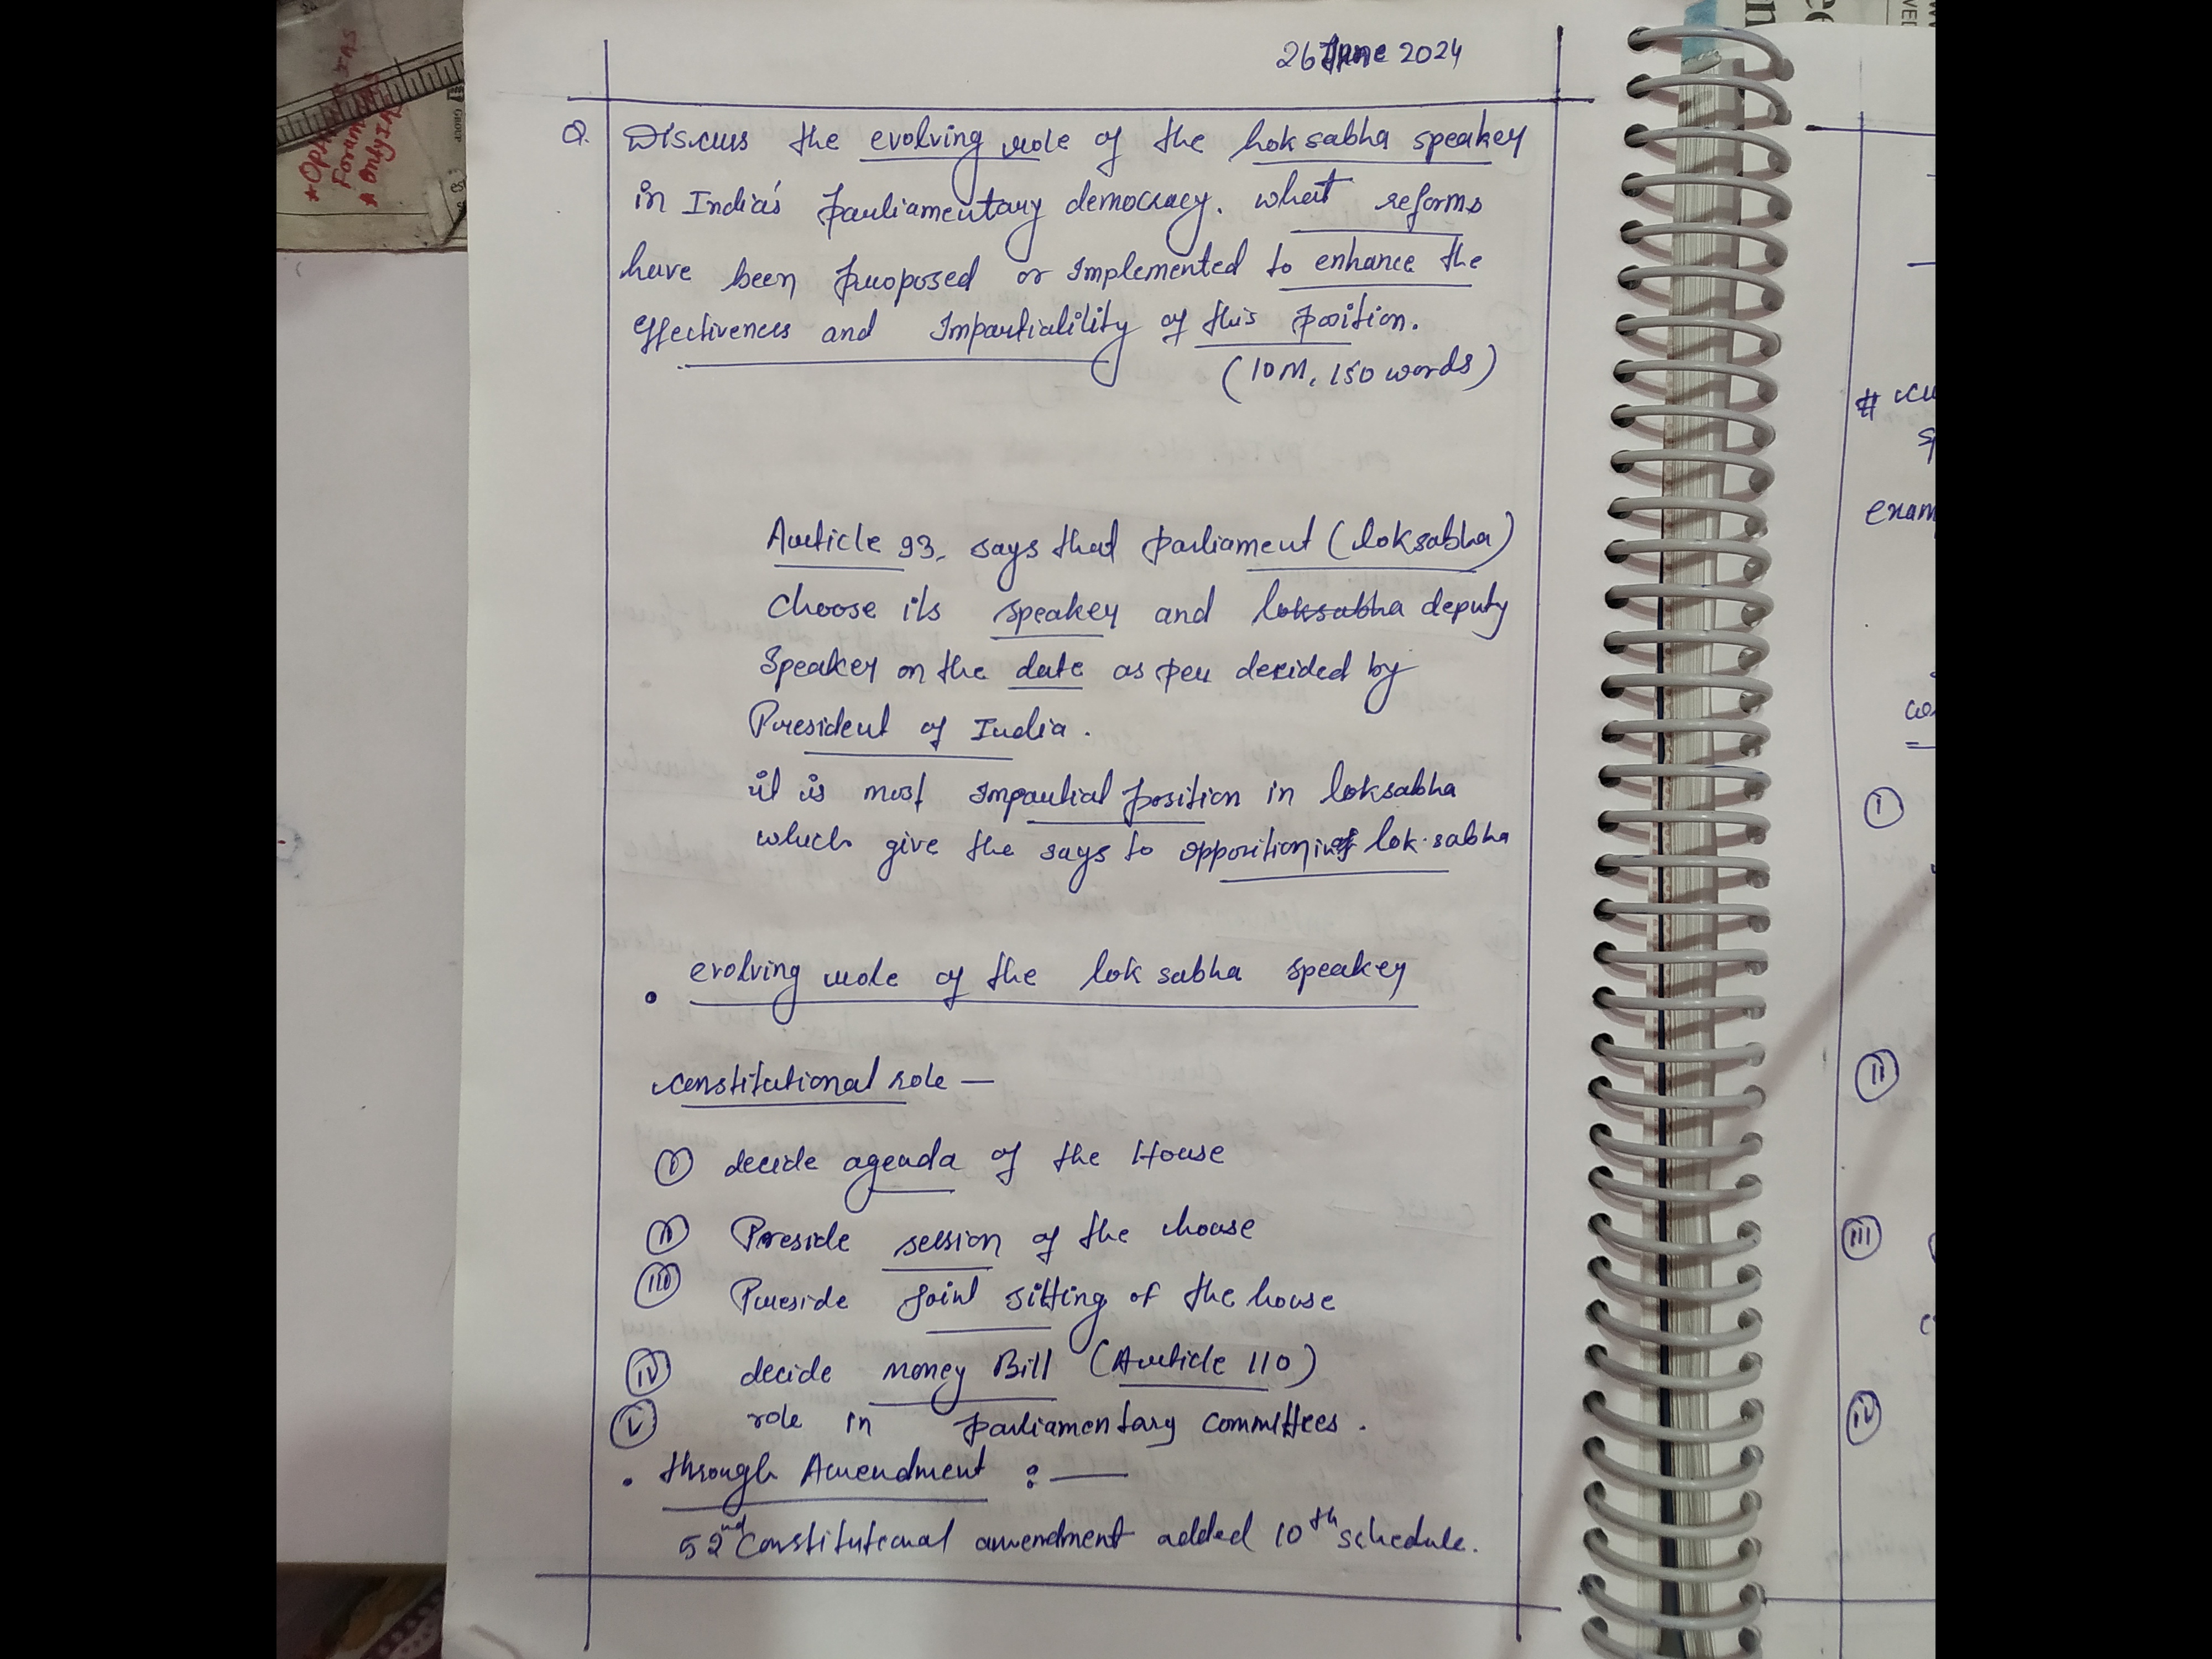 26 June 2024
Q. Discuss the evolving role of the lok sabha speaker
in India's parliamentary democracy. what reforms
have been proposed or implemented to enhance the
effectiveness and Impartiality of this position.
(10M, 150 words)
Article 93, says that parliament (loksabha)
choose its speaker and loksabha deputy
speaker on the date as per decided by
President of India.
it is most impartial position in loksabha
which give the says to opposition in lok sabha
• evolving role of the lok sabha speaker
constitutional role —
(i) decide agenda of the House
(ii) Preside session of the house
(iii) Preside joint sitting of the house
(iv) decide money Bill (Article 110)
(v) role in parliamentary committees.
• through Amendment : —
52nd Constitutional amendment added 10th schedule.
#
exam
(i)
(ii)
(iii)
(iv)